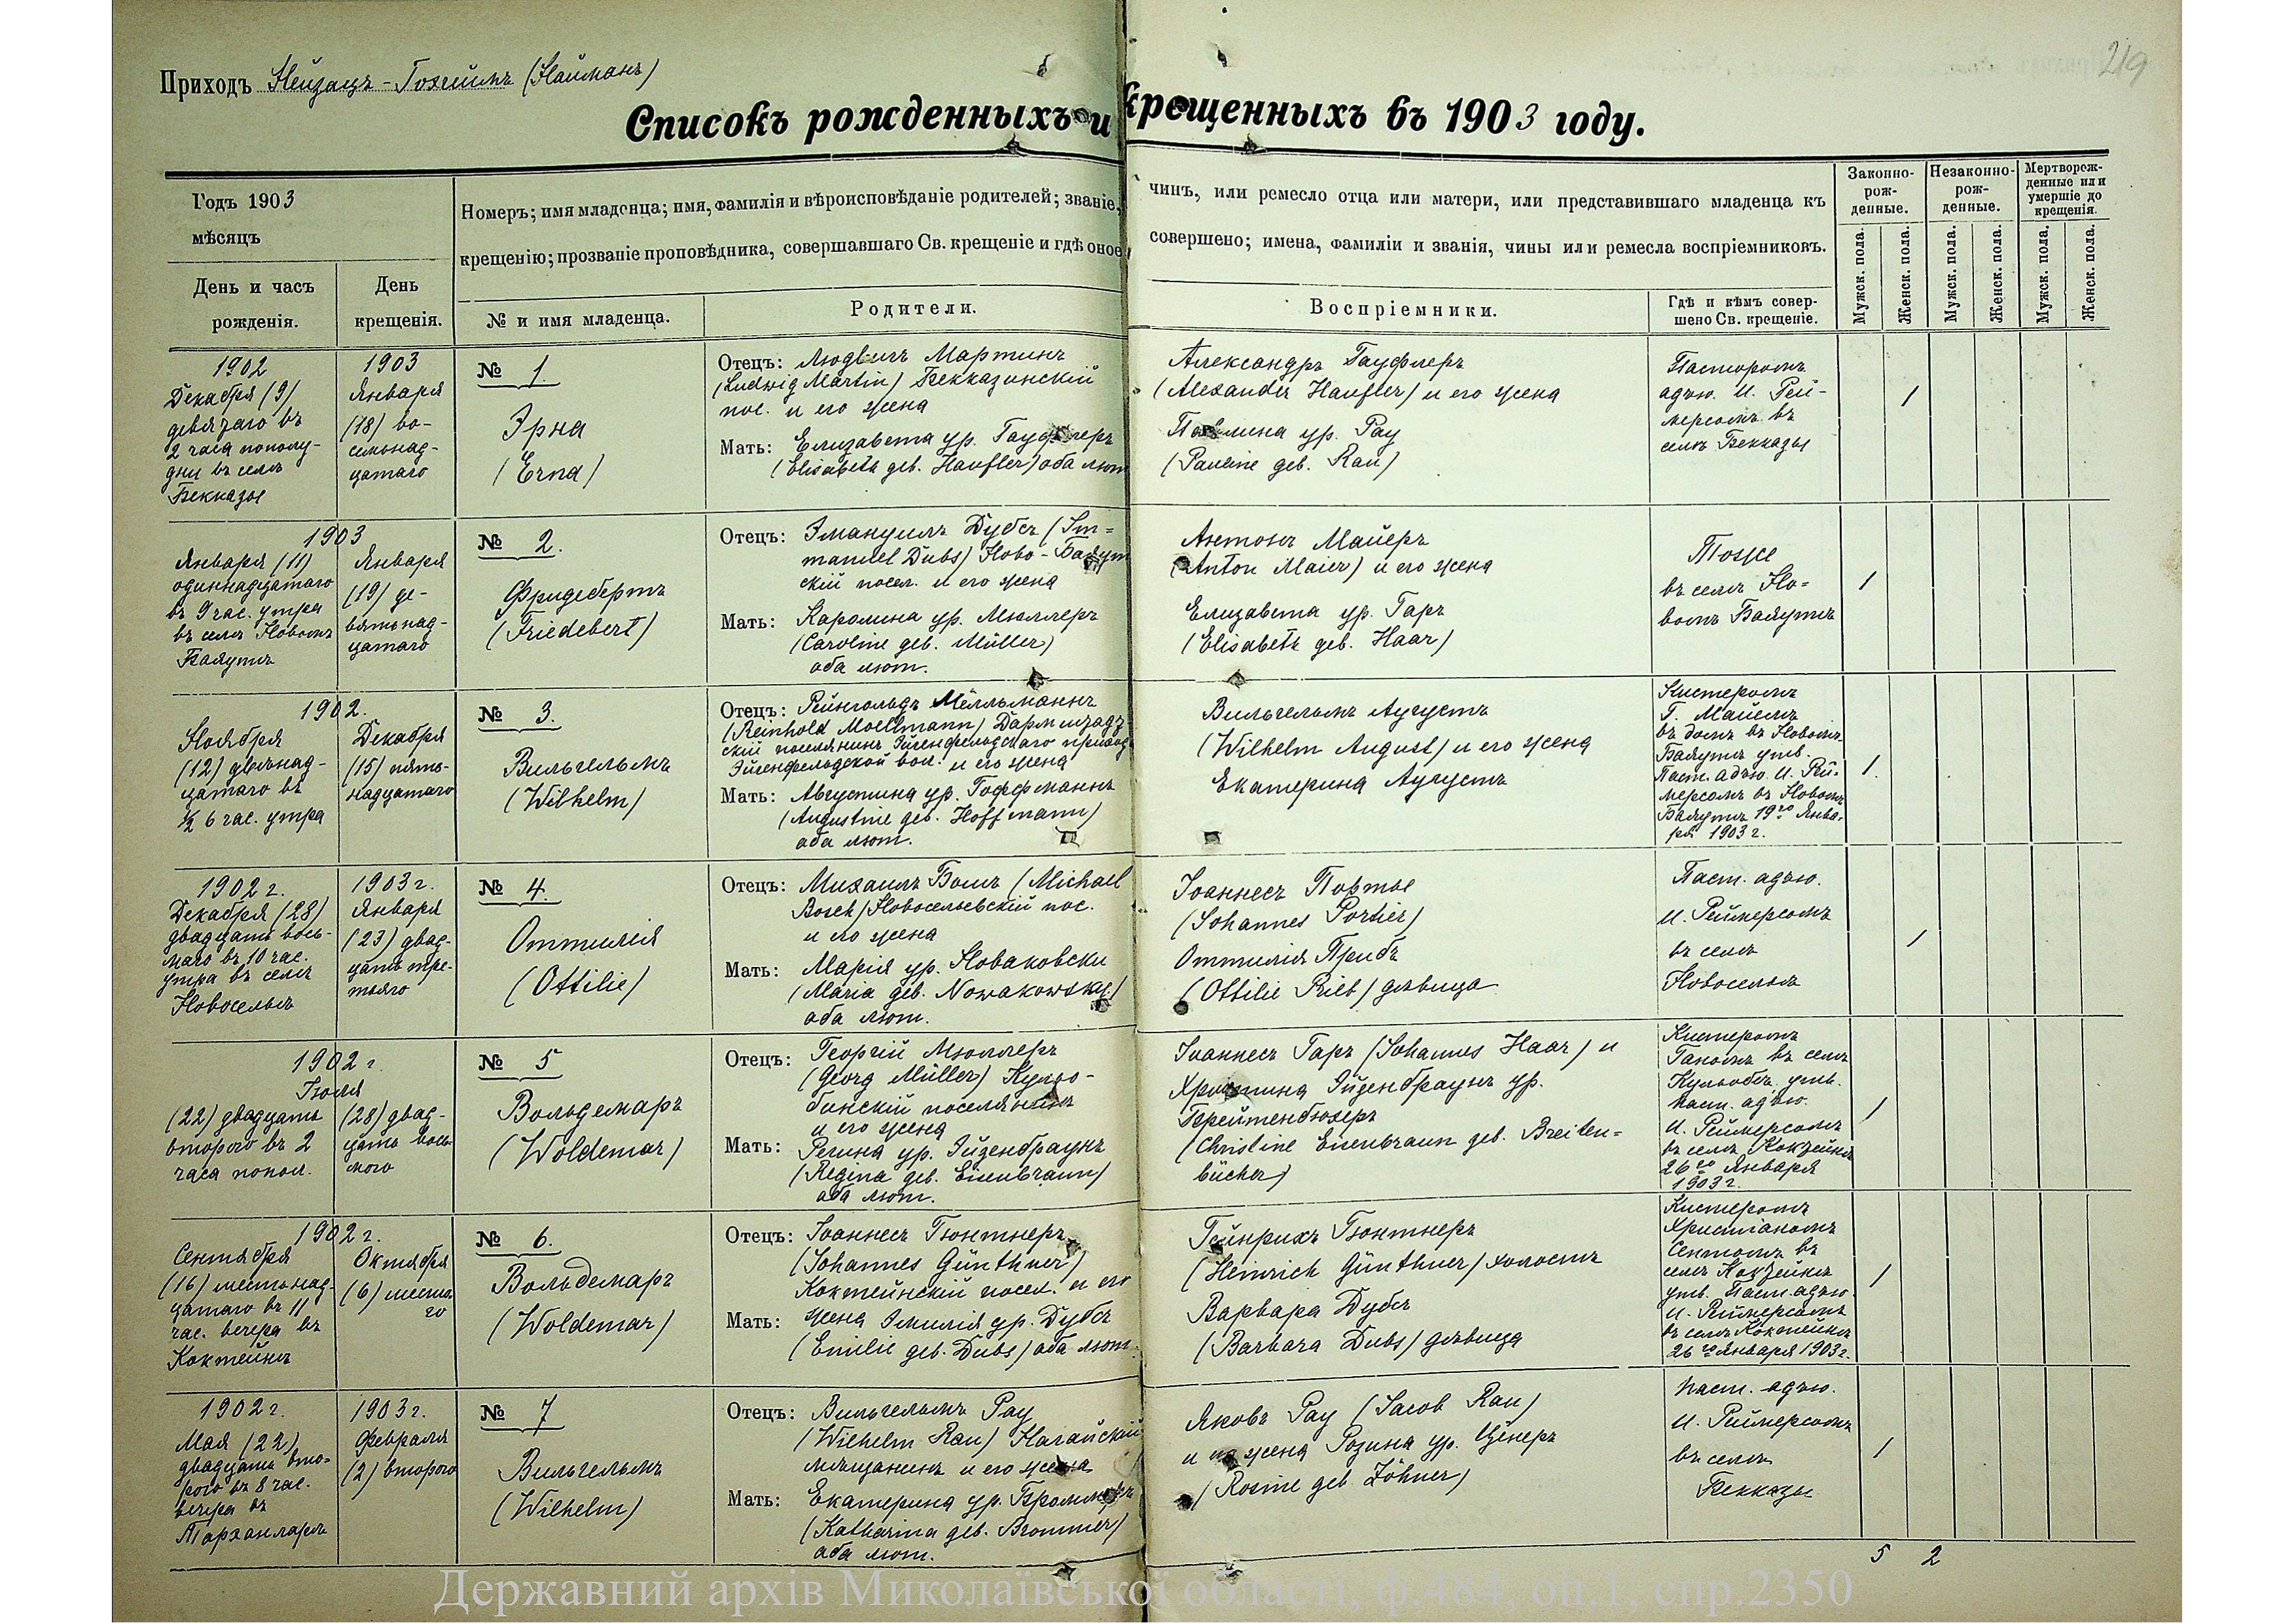 219
Приходъ Нейзацъ-Гохгеймъ (Найманъ)
Списокъ рожденныхъ и крещенныхъ въ 1903 году.
Годъ 1903
мѣсяцъ
День и часъ
рожденія.
День
крещенія.
Номеръ; имя младенца; имя, фамилія и вѣроисповѣданіе родителей; званіе, чинъ, или ремесло отца или матери, или представившаго младенца къ
крещенію; прозваніе проповѣдника, совершавшаго Св. крещеніе и гдѣ оное совершено; имена, фамиліи и званія, чины или ремесла воспріемниковъ.
№ и имя младенца.
Родители.
Воспріемники.
Гдѣ и кѣмъ совер-
шено Св. крещеніе.
Законно-
рож-
денные.
Незаконно-
рож-
денные.
Мертворож-
денные или
умершіе до
крещенія.
Мужск. пола.
Женск. пола.
Мужск. пола.
Женск. пола.
Мужск. пола.
Женск. пола.
1902
Декабря (9)
девятаго въ
2 часа пополу-
дни въ селѣ
Бекказы
1903
Января
(18) во-
семьнад-
цатаго
№ 1.
Эрна
(Erna)
Отецъ: Людвигъ Мартинъ
(Ludwig Martin) Бекказинскій
пос. и его жена
Мать: Елизавета ур. Гауфлеръ
(Elisabeth geb. Haufler) оба лют
Александръ Гауфлеръ
(Alexander Haufler) и его жена
Павлина ур. Рау
(Pauline geb. Rau)
Пасторомъ
адъю. И. Рей-
мерсомъ въ
селѣ Бекказы
1
1903
Января (11)
одиннадцатаго
въ 9 час. утра
въ селѣ Новомъ
Баяутѣ
Января
(19) де-
вятьнад-
цатаго
№ 2.
Фридебертъ
(Friedebert)
Отецъ: Эмануилъ Дубсъ (Im-
manuel Dubs) Ново-Баяут
скій посел. и его жена
Мать: Каролина ур. Мюллеръ
(Caroline geb. Müller)
оба лют.
Антонъ Майеръ
(Anton Maier) и его жена
Елизавета ур. Гаръ
(Elisabeth geb. Haar)
Тоже
въ селѣ Но-
вомъ Баяутѣ
1
1902.
Ноября
(12) двѣнад-
цатаго въ
½ 6 час. утра
Декабря
(15) пять-
надцатаго
№ 3.
Вильгельмъ
(Wilhelm)
Отецъ: Рейнгольдъ Мёлльманнъ
(Reinhold Moellmann) Дармштадт
скій поселянинъ Эйгенфельдскаго приход
Эйгенфельдской вол. и его жена
Мать: Августина ур. Гоффманнъ
(Augustine geb. Hoffmann)
оба лют.
Вильгельмъ Аугустъ
(Wilhelm August) и его жена
Екатерина Аугустъ
Кистеромъ
Г. Майемъ
въ домѣ въ Новомъ
Баяутѣ утв.
Паст. адъю. И. Рей-
мерсомъ въ Новомъ
Баяутѣ 19го Янва-
ря 1903 г.
1.
1902 г.
Декабря (28)
двадцать вось-
маго въ 10 час.
утра въ селѣ
Новосельѣ
1903 г.
Января
(23) двад-
цать тре-
тьяго
№ 4.
Оттилія
(Ottilie)
Отецъ: Михаилъ Бошъ (Michael
Bosch) Новосельевскій пос.
и его жена
Мать: Марія ур. Новаковски
(Maria geb. Nowakowsky)
оба лют.
Іоаннесъ Портье
(Johannes Portier)
Оттилія Прибъ
(Ottilie Prieb) дѣвица
Паст. адъю.
И. Реймерсомъ
въ селѣ
Новосельѣ
1
1902 г
Іюля
(22) двадцать
второго въ 2
часа попол.
(28) двад-
цать вось-
мого
№ 5
Вольдемаръ
(Woldemar)
Отецъ: Георгій Мюллеръ
(Georg Müller) Кульо-
бинскій поселянинъ
и его жена
Мать: Регина ур. Эйзенбраунъ
(Regina geb. Eisenbraun)
оба лют.
Іоаннесъ Гаръ (Johannes Haar) и
Христина Эйзенбраунъ ур.
Брейтенбюхеръ
(Christine Eisenbraun geb. Breiten-
bücher)
Кистеромъ
въ селѣ
Кульобѣ, утв.
паст. адъю.
И. Реймерсомъ
въ селѣ Кокзейнѣ
26го Января
1903 г.
1
1902 г.
Сентября
(16) шестьнад-
цатаго въ 11
час. вечера въ
Коктейнѣ
Октября
(6) шеста-
го
№ 6.
Вольдемаръ
(Woldemar)
Отецъ: Іоаннесъ Гюнтнеръ
(Johannes Günthner)
Коктейнскій посел. и его
Мать: жена Эмилія ур. Дубсъ
(Emilie geb. Dubs) оба лют.
Гейнрихъ Гюнтнеръ
(Heinrich Günthner) холостъ
Варвара Дубсъ
(Barbara Dubs) дѣвица
Кистеромъ
Христіаномъ
въ
селѣ Кокзейнѣ
утв. Паст. адъю.
И. Реймерсомъ
въ селѣ Коктейнѣ
26го Января 1903 г.
1
1902 г.
Мая (22)
двадцать вто-
рого въ 8 час.
вечера въ
Тарханларѣ
1903 г.
Февраля
(2) второго
№ 7
Вильгельмъ
(Wilhelm)
Отецъ: Вильгельмъ Рау
(Wilhelm Rau) Ногайскій
мѣщанинъ и его жена
Мать: Екатерина ур. Броммеръ
(Katharina geb. Brommer)
оба лют.
Яковъ Рау (Jacob Rau)
и его жена Розина ур. Цёнеръ
(Rosine geb Zöhner)
Паст. адъю.
И. Реймерсомъ
въ селѣ
Бекказы
1
5 2
Державний архів Миколаївської області, ф.484, оп.1, спр.2350